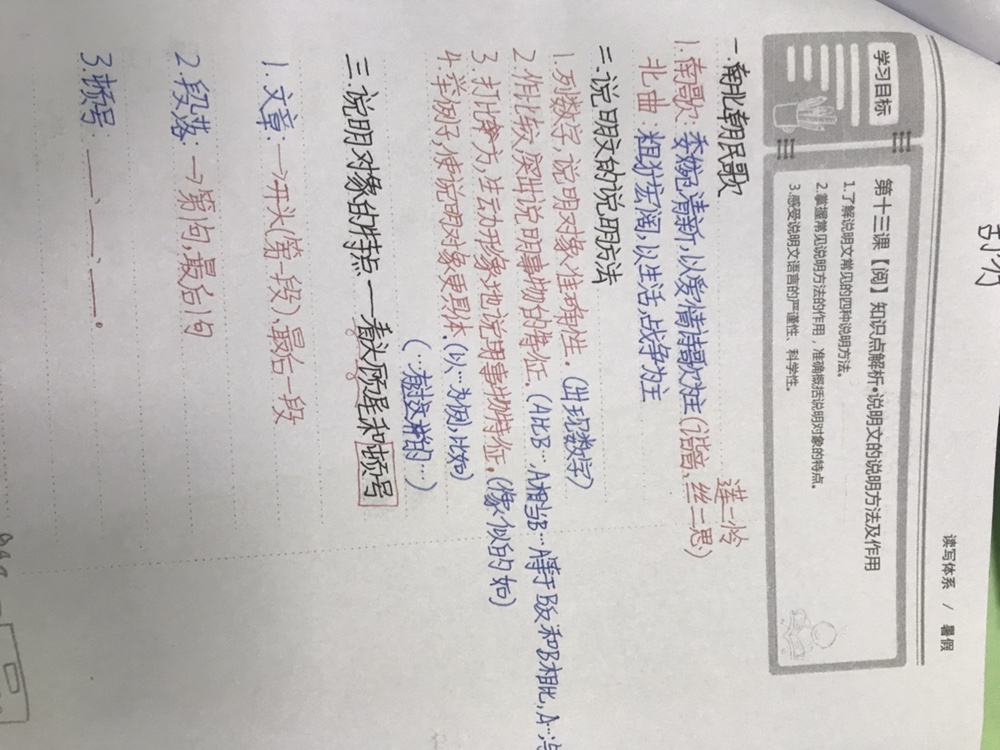 读写体系 / 暑假
学习目标
第十三课【阅】知识点解析•说明文的说明方法及作用
1.了解说明文常见的四种说明方法。
2.掌握常见说明方法的作用，准确概括说明对象的特点。
3.感受说明文语言的严谨性、科学性。
一.南北朝民歌
莲=怜
1.南歌：委婉清新，以爱情诗歌为主(谐音、丝=思)
北曲：粗犷宏阔，以生活，战争为主
二.说明文的说明方法
1.列数字，说明对象准确性.(出现数字)
2.作比较，突出说明事物的特征.(A比B…,A相当B…A等于B…和B相比,A…;与
3.打比方，生动形象地说明事物特征.(像、似的、如)
4.举例子，使说明对象更具体.(以…为例,比如)
(…有这样的…)
三.说明对象的特点——看头顾尾和顿号
1.文章：→开头(第一段)、最后一段
2.段落：→第1句,最后1句
3.顿号：——、——、——。